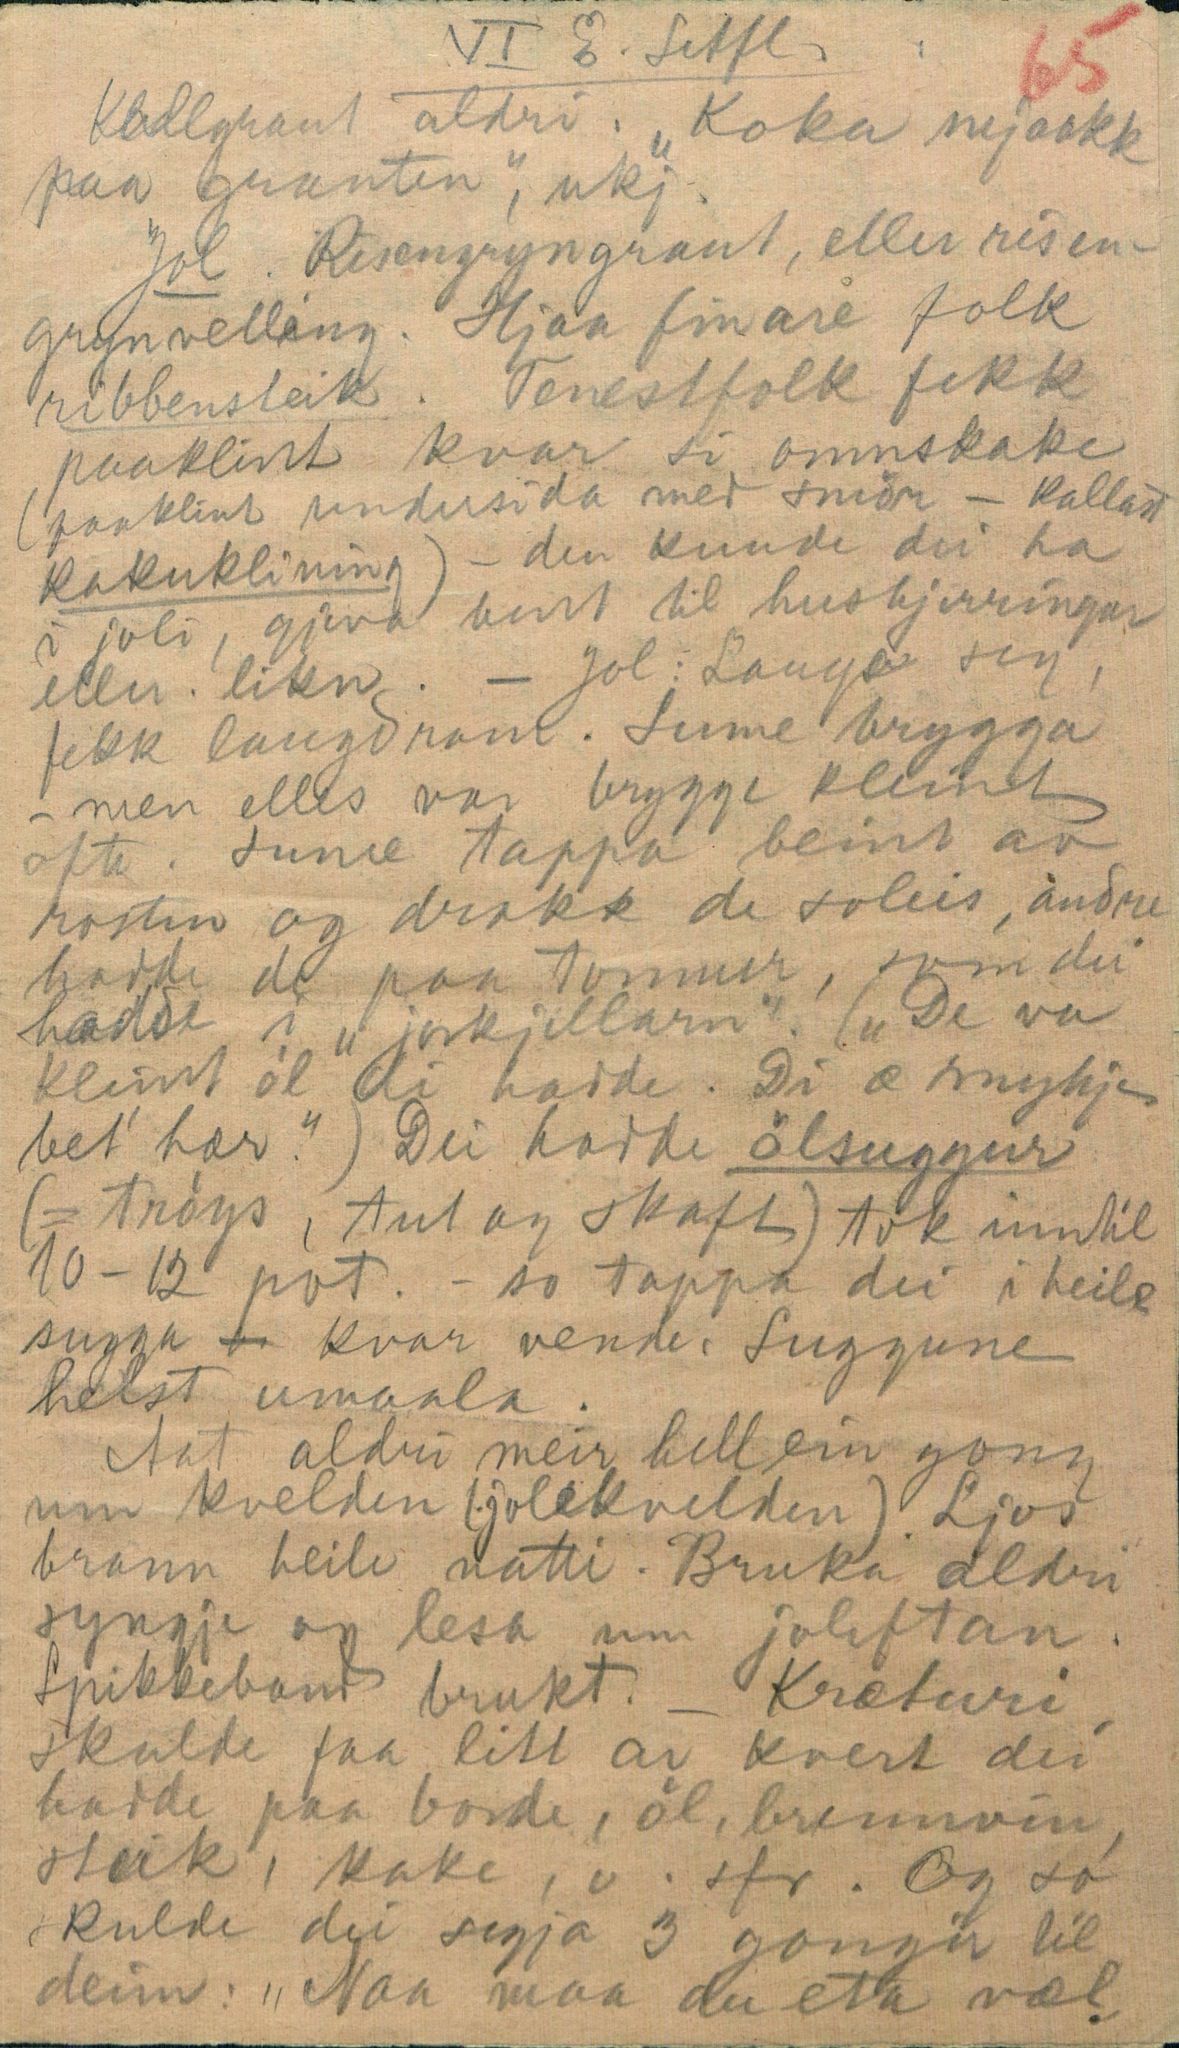 VI E. Setfl.
65
Kallgraut aldri. "Koka mjaakk
paa grauten", ukj.
Jol. Risengryngraut, eller risen-
grynvelling. Hjaa finare folk
ribbensteik. Tenestfolk fekk
paaklint kvar si omnskake
(paaklint undersida med smör – kallast
kakuklining) – den kunde dei ha
i joli, gjeva burt til huskjerringar
eller likn. – Jol: Lauga seg,
fekk laugdram. Sume brygga
– men elles var brygge kleint
ofte. Sume tappa beint av
rosten og drakk de soleis, andre
hadde de paa tonner, som dei
hadde i "jorkjellarn". ("De va
kleint öl di hadde. Di æ mykje
bet' hær.") Dei hadde ölsuggur
(= tröys, tut og skaft) tok inntil
10–12 pot. – so tappa dei i heile
sugga – kvar vende. Suggune
helst umaala.
Aat aldri meir hell ein gong
um kvelden (jolekvelden). Ljos
brann heile natti. Bruka aldri
syngje og lesa um joleftan.
Spikkeband brukt. – Kræturi
skulde faa litt av kvert dei
hadde paa borde, öl, brennvin,
steik, kake, o.sfr. Og so
skulde dei segja 3 gongir til
deim: "Naa maa du eta væl